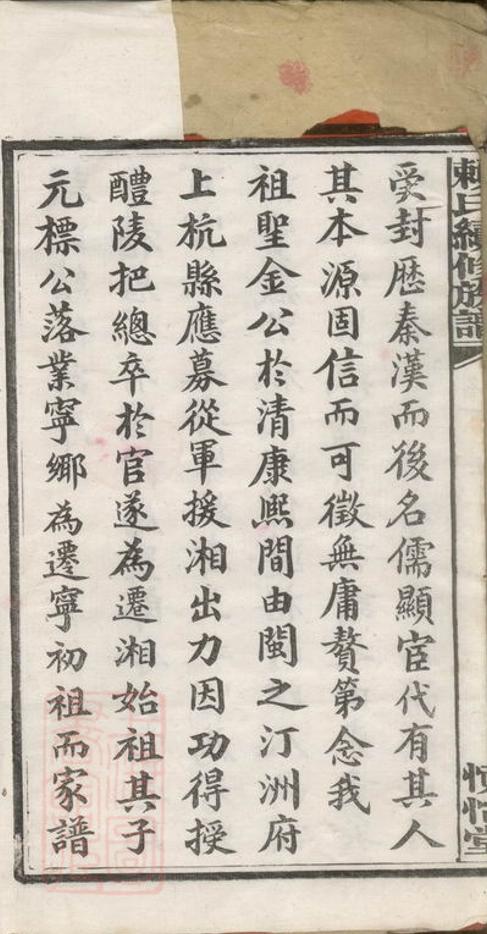 賴氏續修族譜
受封歷秦漢而後名儒顯宦代有其人
其本源固信而可徵無庸贅第念我
祖聖金公於清康熙間由閩之汀洲府
上杭縣應募從軍援湘出力因功得授
醴陵把總卒於官遂為遷湘始祖其子
元標公落業寧鄉為遷寧初祖而家譜